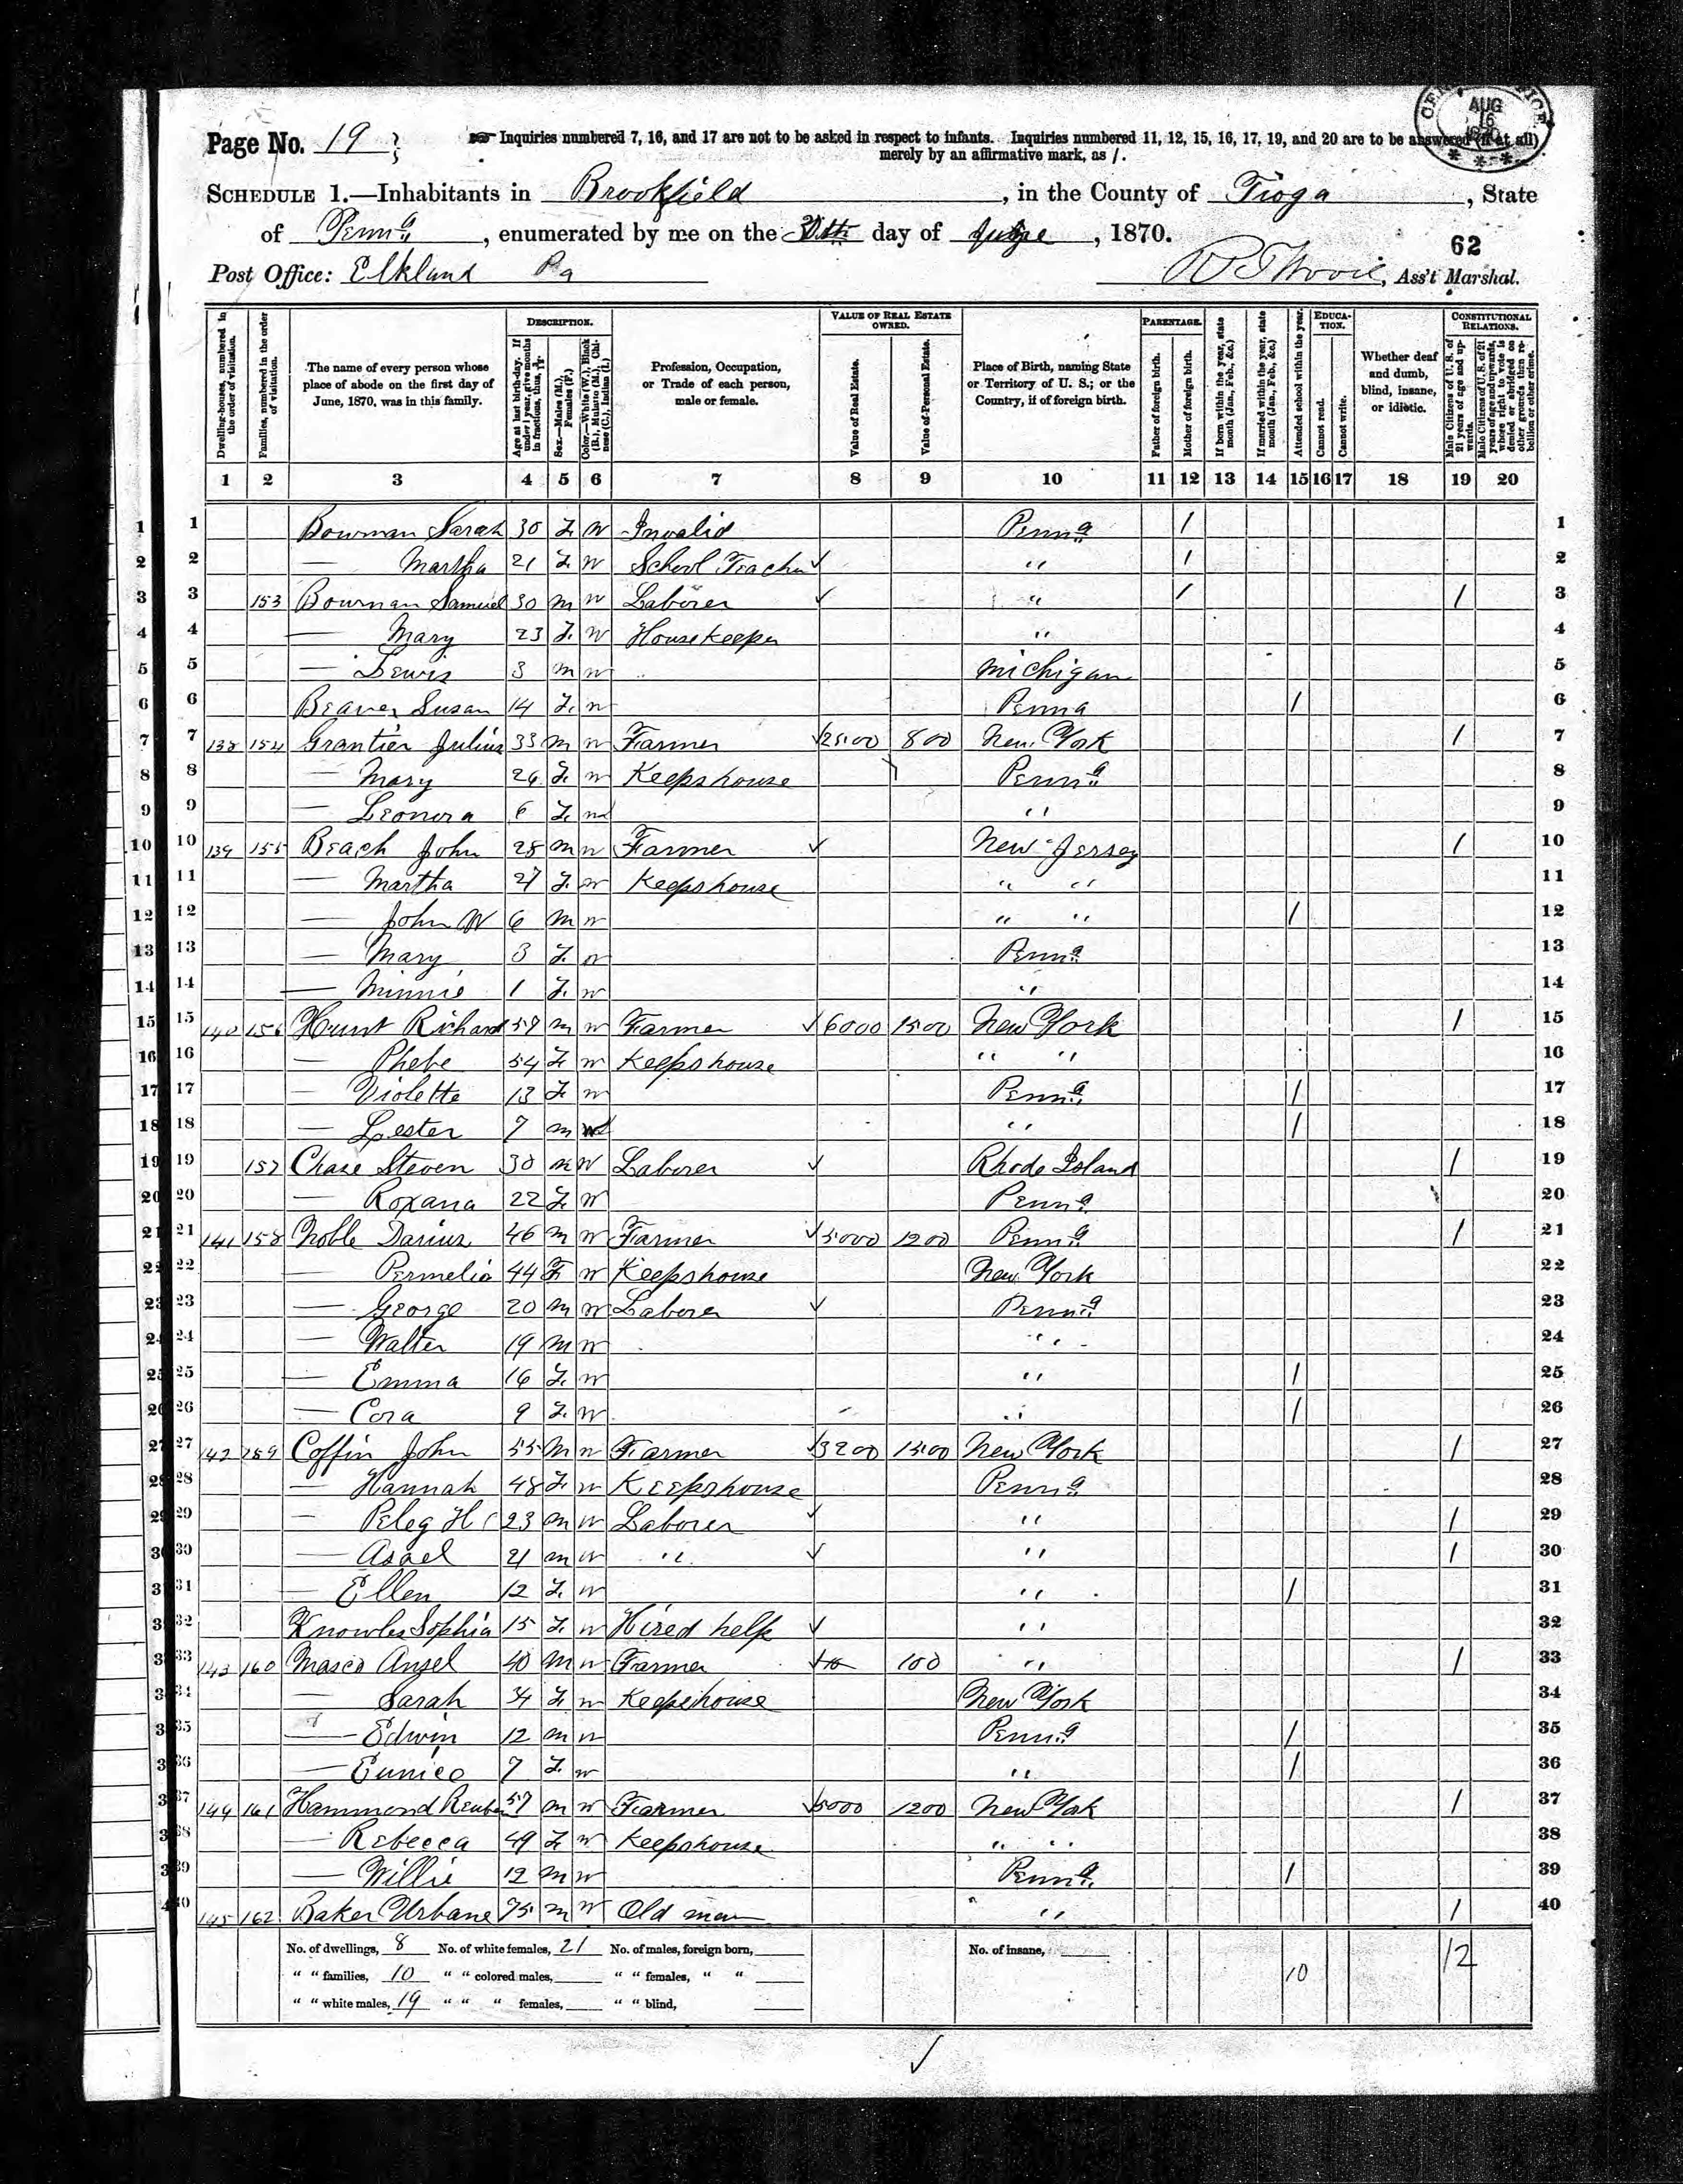 CEN ICE
AUG
16
1870
Page No. 19
Inquiries numbered 7, 16, and 17 are not to be asked in respect to infants. Inquiries numbered 11, 12, 15, 16, 17, 19, and 20 are to be answered (if at all)
merely by an affirmative mark, as /.
SCHEDULE 1.—Inhabitants in Brookfield, in the County of Tioga, State
of Penna, enumerated by me on the day of, 1870.
62
Post Office: Elkland Pa Ass't Marshal.
Dwelling-houses, numbered in the order of visitation.
Families, numbered in the order of visitation.
The name of every person whose place of abode on the first day of June, 1870, was in this family.
DESCRIPTION.
Age at last birth-day. If under 1 year, give months in fractions, thus, 3/12
Sex.—Males (M.), Females (F.)
Color.—White (W.), Black (B.), Mulatto (M.), Chinese (C.), Indian (I.)
Profession, Occupation, or Trade of each person, male or female.
VALUE OF REAL ESTATE OWNED.
Value of Real Estate.
Value of Personal Estate.
Place of Birth, naming State or Territory of U. S.; or the Country, if of foreign birth.
PARENTAGE.
Father of foreign birth.
Mother of foreign birth.
If born within the year, state month (Jan., Feb., &c.)
If married within the year, state month (Jan., Feb., &c.)
Attended school within the year.
EDUCATION.
Cannot read.
Cannot write.
Whether deaf and dumb, blind, insane, or idiotic.
CONSTITUTIONAL RELATIONS.
Male Citizens of U. S. of 21 years of age and upwards.
Male Citizens of U. S. of 21 years of age and upwards, whose right to vote is denied or abridged on other grounds than rebellion or other crime.
1 2 3 4 5 6 7 8 9 10 11 12 13 14 15 16 17 18 19 20
1 1 Bowman Sarah 30 F W Invalid Penna / 1
2 2 — Martha 21 F W School Teacher ✓ " / 2
3 3 153 Bowman Samuel 30 M W Laborer ✓ " / / 3
4 4 — Mary 23 F W Housekeeper " 4
5 5 — Lewis 3 M W Michigan 5
6 6 Beaver Susan 14 F W Penna / 6
7 7 138 154 Grantier Julius 33 M W Farmer ✓ 2500 800 New York / 7
8 8 — Mary 26 F W Keeps house Penna 8
9 9 — Leonora 6 F W " 9
10 10 139 155 Beach John 28 M W Farmer ✓ New Jersey / 10
11 11 — Martha 27 F W Keeps house " " 11
12 12 — John W 6 M W " " / 12
13 13 — Mary 3 F W Penna 13
14 14 — Minnie 1 F W " 14
15 15 140 156 Hunt Richard 57 M W Farmer ✓ 6000 1500 New York / 15
16 16 — Phebe 54 F W Keeps house " " 16
17 17 — Violette 13 F W Penna / 17
18 18 — Lester 7 M W " / 18
19 19 157 Chase Steven 30 M W Laborer ✓ Rhode Island / 19
20 20 — Roxana 22 F W Penna 20
21 21 141 158 Noble Darius 46 M W Farmer ✓ 5000 1200 Penna / 21
22 22 — Permelia 44 F W Keeps house New York 22
23 23 — George 20 M W Laborer ✓ Penna 23
24 24 — Walter 19 M W " 24
25 25 — Emma 16 F W " / 25
26 26 — Cora 9 F W " / 26
27 27 142 159 Coffin John 55 M W Farmer ✓ 3200 1500 New York / 27
28 28 — Hannah 48 F W Keeps house Penna 28
29 29 — Peleg H 23 M W Laborer ✓ " / 29
30 30 — Asael 21 M W " ✓ " / 30
31 31 — Ellen 12 F W " / 31
32 32 Knowles Sophia 15 F W Hired help ✓ " 32
33 33 143 160 Masco Ansel 40 M W Farmer ✓ 100 " / 33
34 34 — Sarah 34 F W Keeps house New York 34
35 35 — Edwin 12 M W Penna / 35
36 36 — Eunice 7 F W " / 36
37 37 144 161 Hammond Reuben 57 M W Farmer ✓ 5000 1200 New York / 37
38 38 — Rebecca 49 F W Keeps house " " 38
39 39 — Willie 12 M W Penna / 39
40 40 145 162 Baker Urbane 75 M W Old man " / 40
No. of dwellings, 8 No. of white females, 21 No. of males, foreign born, No. of insane,
" " families, 10 " " colored males, " " females, " " 10 12
" " white males, 19 " " " females, " " blind,
✓